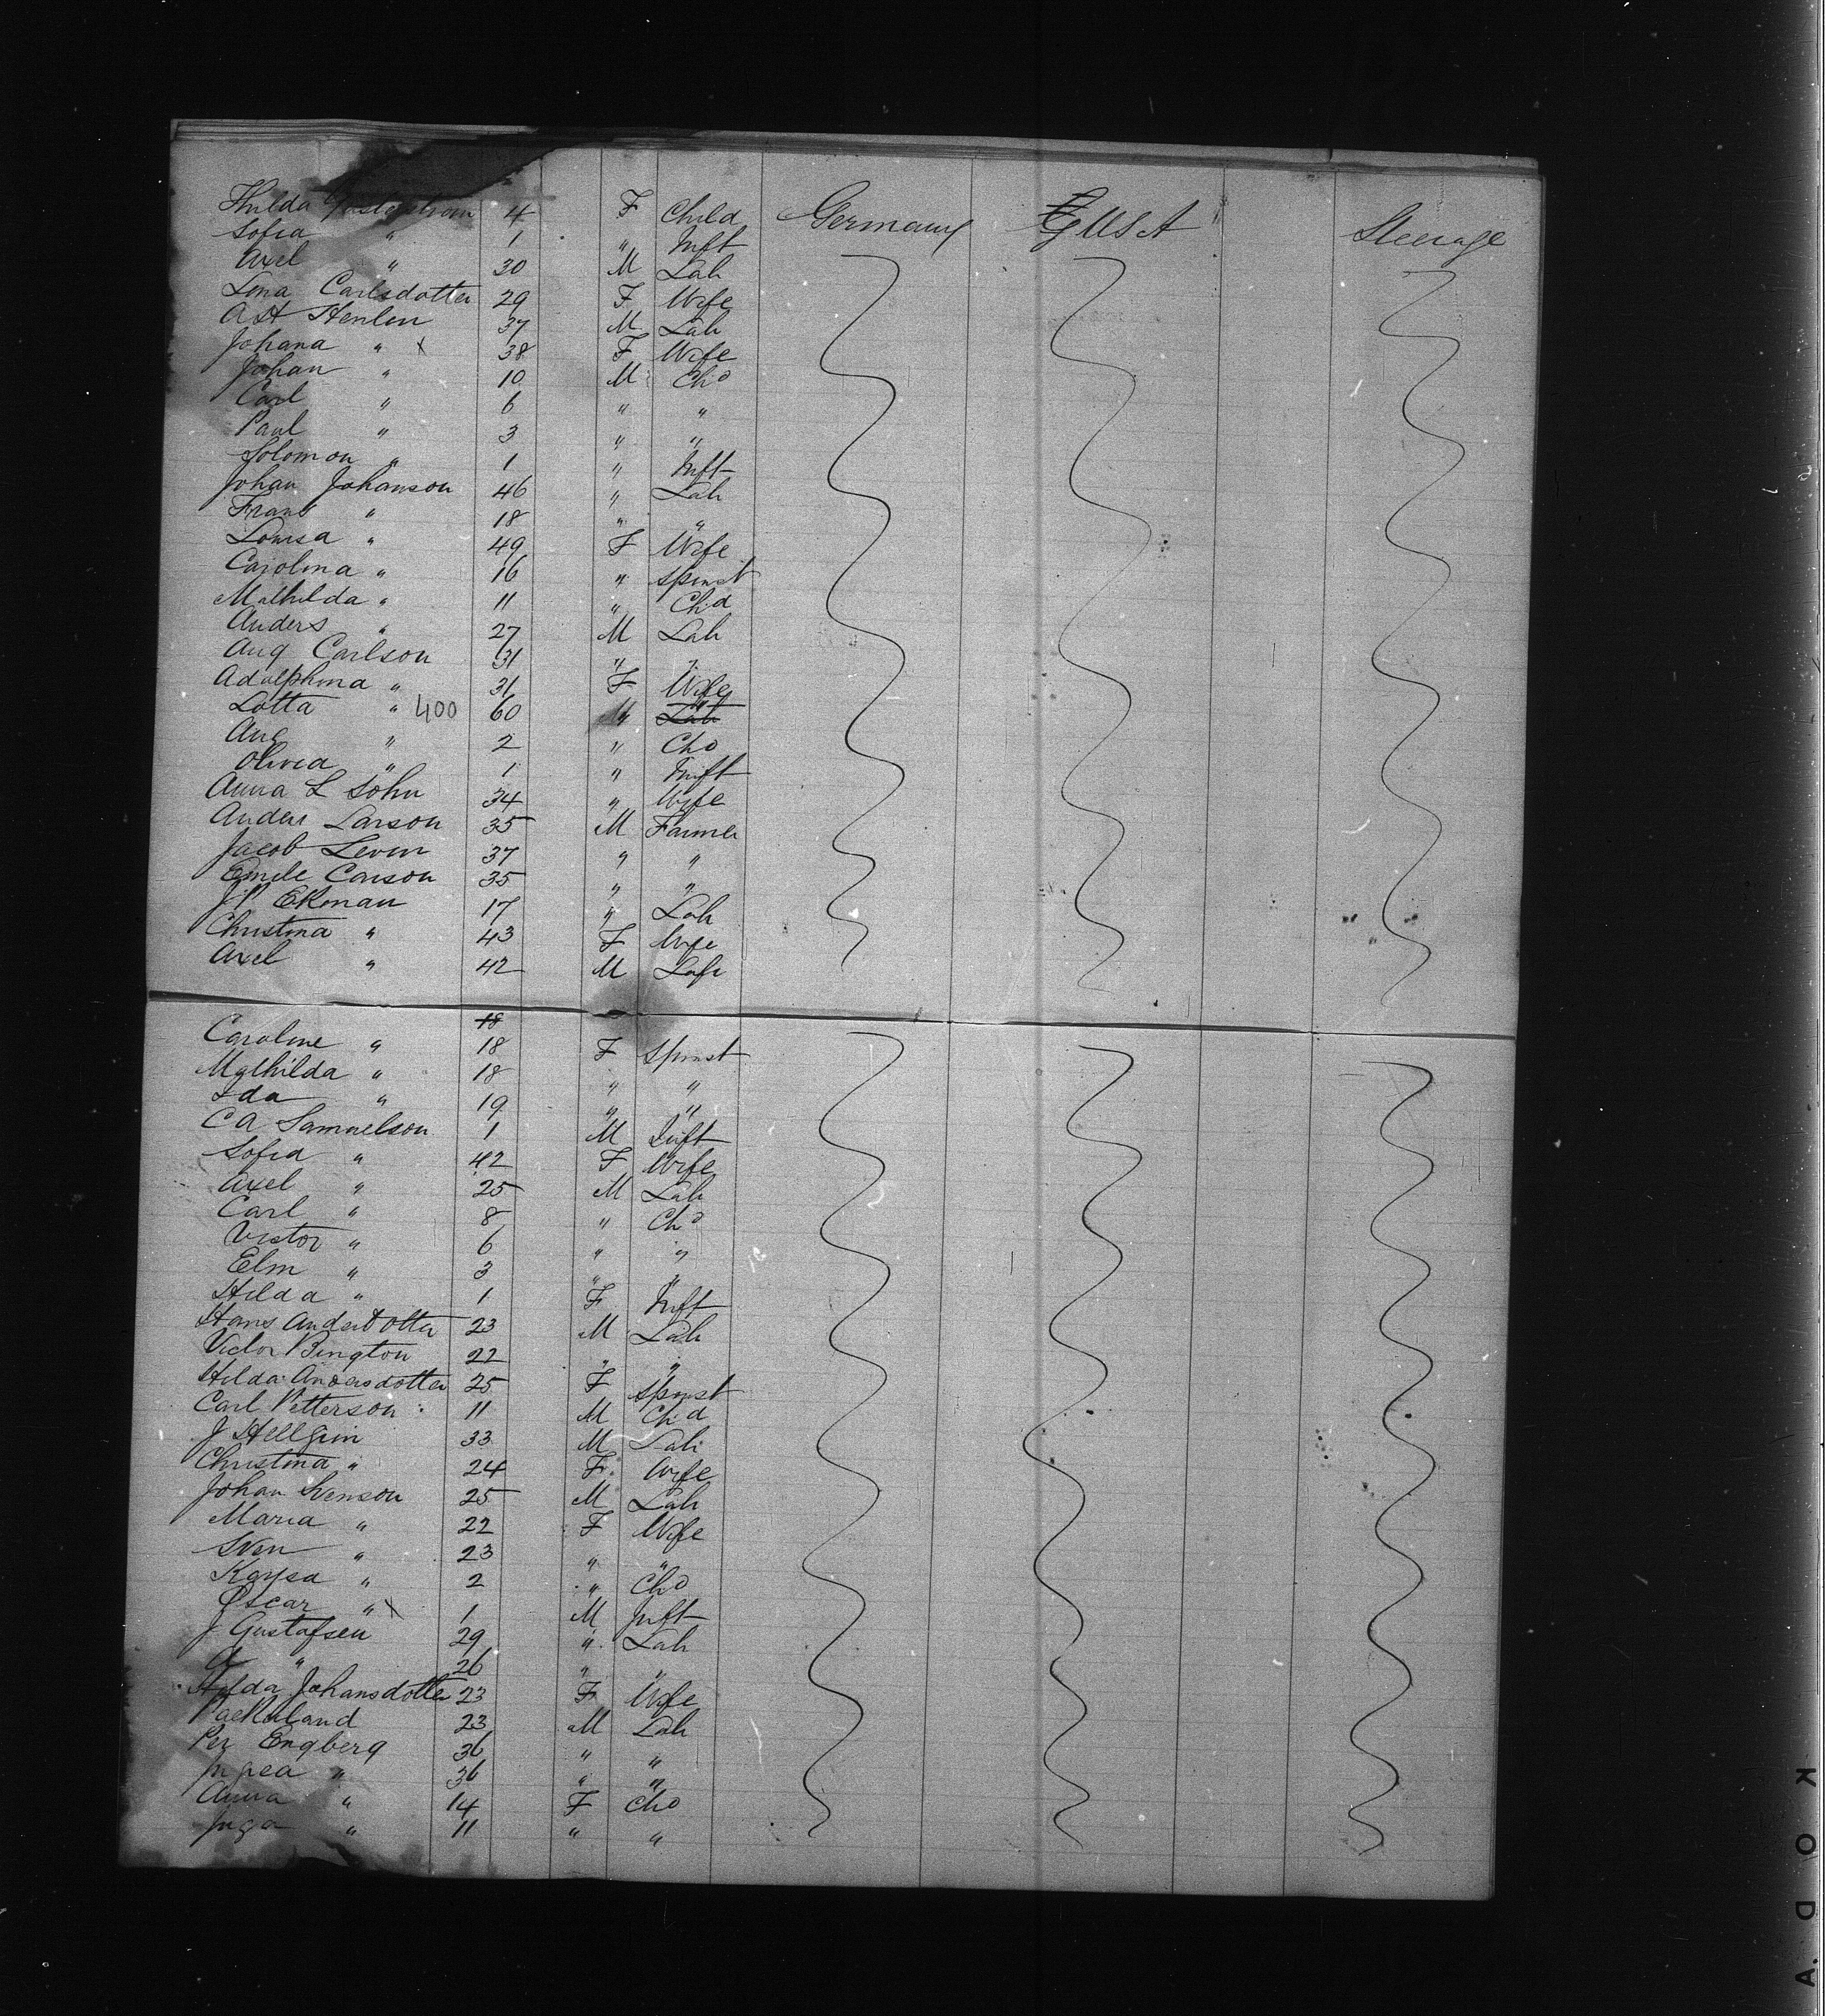 Hulda 4 F Child Germany USA Steerage
Sofia " 1 " Inft
Axel " 30 M Lab
Lena Carlsdotter 29 F Wife
A H Henlin 37 M Lab
Johana " x 38 F Wife
Johan " 10 M Chd
Carl " 6 " "
Paul " 3 " "
Solomon " 1 " Inft
Johan Johanson 46 " Lab
Frans " 18 " "
Lovisa " 49 F Wife
Carolina " 16 " Spinst
Mathilda " 11 " Chd
Anders " 27 M Lab
Aug Carlson 31 " "
Adolphina " 31 F Wife
Lotta " 400 60 " "
Aug " 2 " Chd
Olivia " 1 " Inft
Anna L Sohn 34 " Wife
Anders Larson 35 M Farmer
Jacob Levin 37 " "
Emile Carson 35 " "
J P Ekman 17 " Lab
Christina " 43 F Wife
Axel " 42 M Lab
18
Caroline " 18 F Spinst
Mathilda " 18 " "
Ida " 19 " "
C A Samuelson 1 M Inft
Sofia " 42 F Wife
Axel " 25 M Lab
Carl " 8 " Chd
Victor " 6 " "
Elm " 3 " "
Hilda " 1 F Inft
Hans Andersdotter 23 M Lab
Victor Bington 22 " "
Hilda Andersdotter 25 F Spinst
Carl Petterson 11 M Chd
J Hellgrin 33 M Lab
Christina " 24 F Wife
Johan Svenson 25 M Lab
Maria " 22 F Wife
Sven " 23 " "
Kaysa " 2 " Chd
Oscar " x 1 M Inft
J Gustafsen 29 " Lab
A " 26 " "
Hilda Johansdotter 23 F Wife
23 M Lab
Per Engberg 36 " "
" 36 " "
Anna " 14 F Chd
Inga " 11 " "
KODA